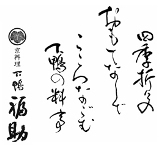 四季折々の
おもてなしで
こころなごむ
下鴨の料亭
京料理
下鴨
福助